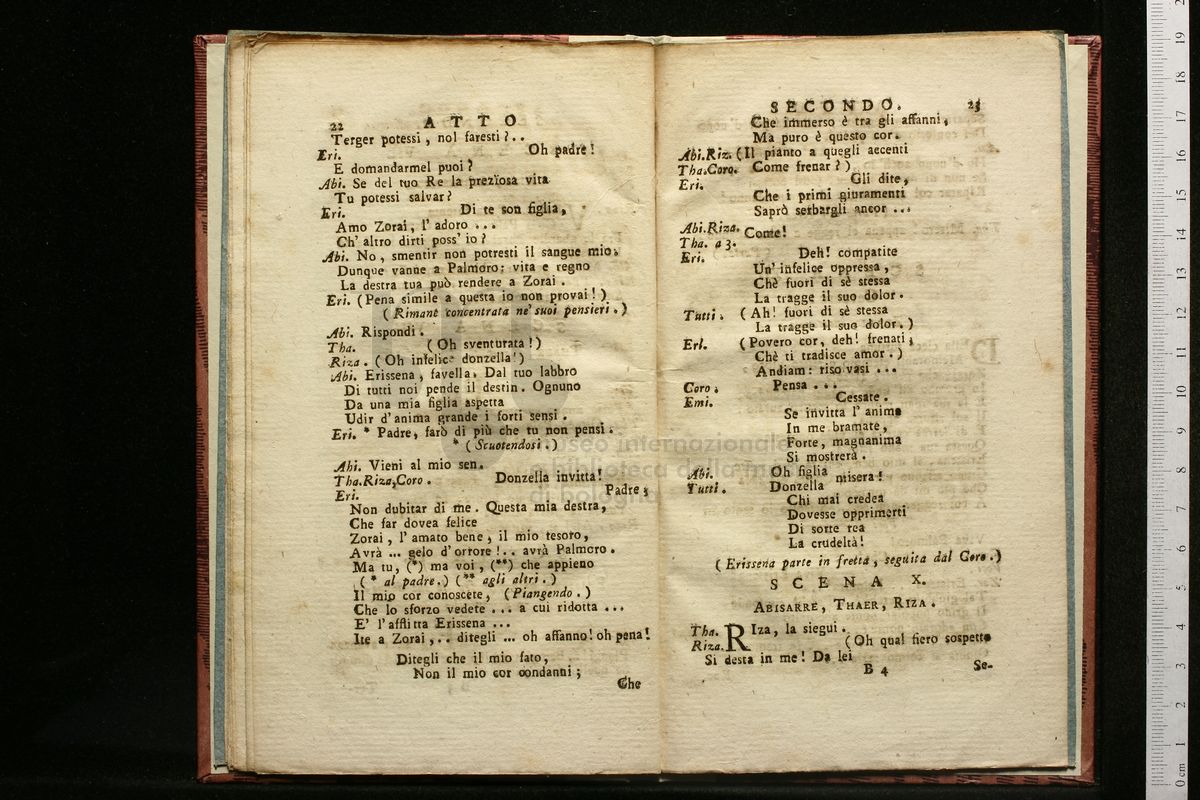 22 ATTO
Terger potessi, nol faresti?..
Eri. Oh padre!
E domandarmel puoi?
Abi. Se del tuo Re la prezïosa vita
Tu potessi salvar?
Eri. Di te son figlia,
Amo Zorai, l' adoro ...
Ch' altro dirti poss' io?
Abi. No, smentir non potresti il sangue mio.
Dunque vanne a Palmoro: vita e regno
La destra tua può rendere a Zorai.
Eri. (Pena simile a questa io non provai!)
(Rimane concentrata ne' suoi pensieri.)
Abi. Rispondi.
Tha. (Oh sventurata!)
Riza. (Oh infelice donzella!)
Abi. Erissena, favella. Dal tuo labbro
Di tutti noi pende il destin. Ognuno
Da una mia figlia aspetta
Udir d' anima grande i forti sensi.
Eri. * Padre, farò di più che tu non pensi.
* (Scuotendosi.)
Abi. Vieni al mio sen.
Tha.Riza,Coro. Donzella invitta!
Eri. Padre;
Non dubitar di me. Questa mia destra,
Che far dovea felice
Zorai, l' amato bene, il mio tesoro,
Avrà ... gelo d' orrore!.. avrà Palmoro.
Ma tu, (*) ma voi, (**) che appieno
(* al padre.) (** agli altri.)
Il mio cor conoscete, (Piangendo.)
Che lo sforzo vedete ... a cui ridotta ...
E' l' afflitta Erissena ...
Ite a Zorai,.. ditegli ... oh affanno! oh pena!
Ditegli che il mio fato,
Non il mio cor condanni;
Che
SECONDO. 23
Che immerso è tra gli affanni,
Ma puro è questo cor.
Abi.Riz. (Il pianto a quegli accenti
Tha.Coro. Come frenar?)
Eri. Gli dite,
Che i primi giuramenti
Saprò serbargli ancor ...
Abi.Riza. Come!
Tha. a 3.
Eri. Deh! compatite
Un' infelice oppressa,
Chè fuori di sè stessa
La tragge il suo dolor.
Tutti. (Ah! fuori di sè stessa
La tragge il suo dolor.)
Erl. (Povero cor, deh! frenati,
Chè ti tradisce amor.)
Andiam: riso vasi ...
Coro. Pensa ...
Emi. Cessate.
Se invitta l' anima
In me bramate,
Forte, magnanima
Si mostrerà.
Abi. Oh figlia misera!
Tutti. Donzella
Chi mai credea
Dovesse opprimerti
Di sorte rea
La crudeltà!
(Erissena parte in fretta, seguita dal Coro.)
SCENA X.
ABISARRE, THAER, RIZA.
Tha. RIza, la siegui.
Riza. (Oh qual fiero sospetto
Si desta in me! Da lei
B 4 Se-
museo internazionale
e biblioteca della musica
di bologna